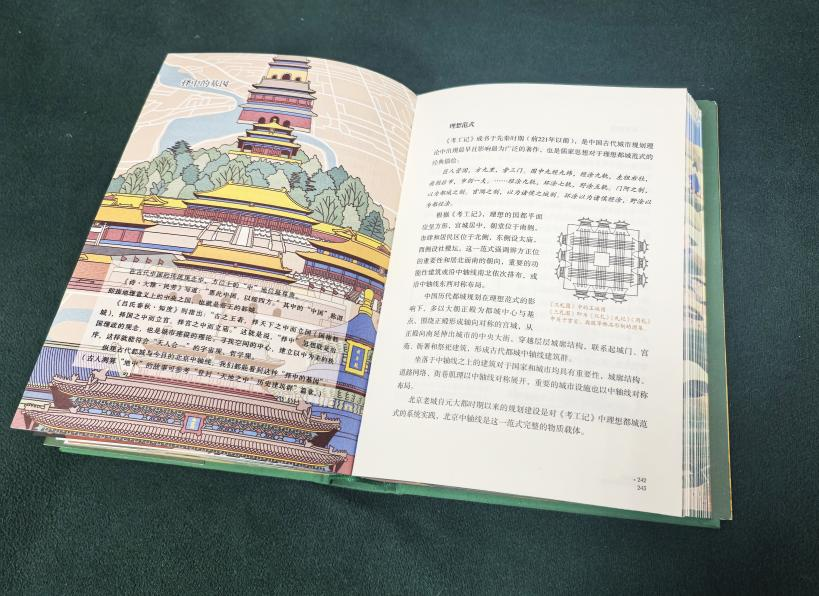 择中的基因
在古代中国的传统观念里，方位上的“中”地位是尊贵。
《诗·大雅·民劳》写道：“惠此中国，以绥四方。”其中的“中国”就道
《吕氏春秋·知度》则指出：“古之王者，择天下之中而立国（国指都
城），择国之中而立宫，择宫之中而立庙。”这就是说，“择中”思想既是治
国理政的理念，也是城市建设的理论，寻找空间的中心，建立以中为美的秩
序，这样就能符合“天人合一”的宇宙观、哲学观。
纵观古代都城与今日的北京中轴线，我们都能看到这种“择中的基因”。
理想范式
《考工记》成书于先秦时期（前221年以前），是中国古代城市规划理
论中出现最早且影响最为广泛的著作，也是儒家思想对于理想都城范式的
经典描绘：
匠人营国，方九里，旁三门。国中九经九纬，经涂九轨，左祖右社，
面朝后市，市朝一夫。……经涂九轨，环涂七轨，野涂五轨。门阿之制，
以为都城之制。宫隅之制，以为诸侯之城制。环涂以为诸侯经涂，野涂以
为都经涂。
根据《考工记》，理想的国都平面
应呈方形，宫城居中，朝堂位于南侧，
市肆和居民区位于北侧，东侧设太庙，
西侧设社稷坛。这一范式强调辨方正位
的重要性和居北面南的朝向，重要的功
能性建筑或沿中轴线南北依次排布，或
沿中轴线东西对称布局。
《三礼图》中的王城图
《三礼图》即为《仪礼》《礼记》《周礼》
中国历代都城规划在理想范式的影
响下，多以大朝正殿为都城中心与基
点，围绕正殿形成轴向对称的宫城，从
正殿向南延伸出城市的中央大街，穿越层层城廓结构，联系起城门、宫
苑、衙署和祭祀建筑，形成古代都城中轴线建筑群。
坐落于中轴线之上的建筑对于国家和城市均具有重要性，城廓结构、
道路网络、街巷肌理以中轴线对称展开，重要的城市设施也以中轴线对称
布局。
北京老城自元大都时期以来的规划建设是对《考工记》中理想都城范
式的系统实践，北京中轴线是这一范式完整的物质载体。
242
243